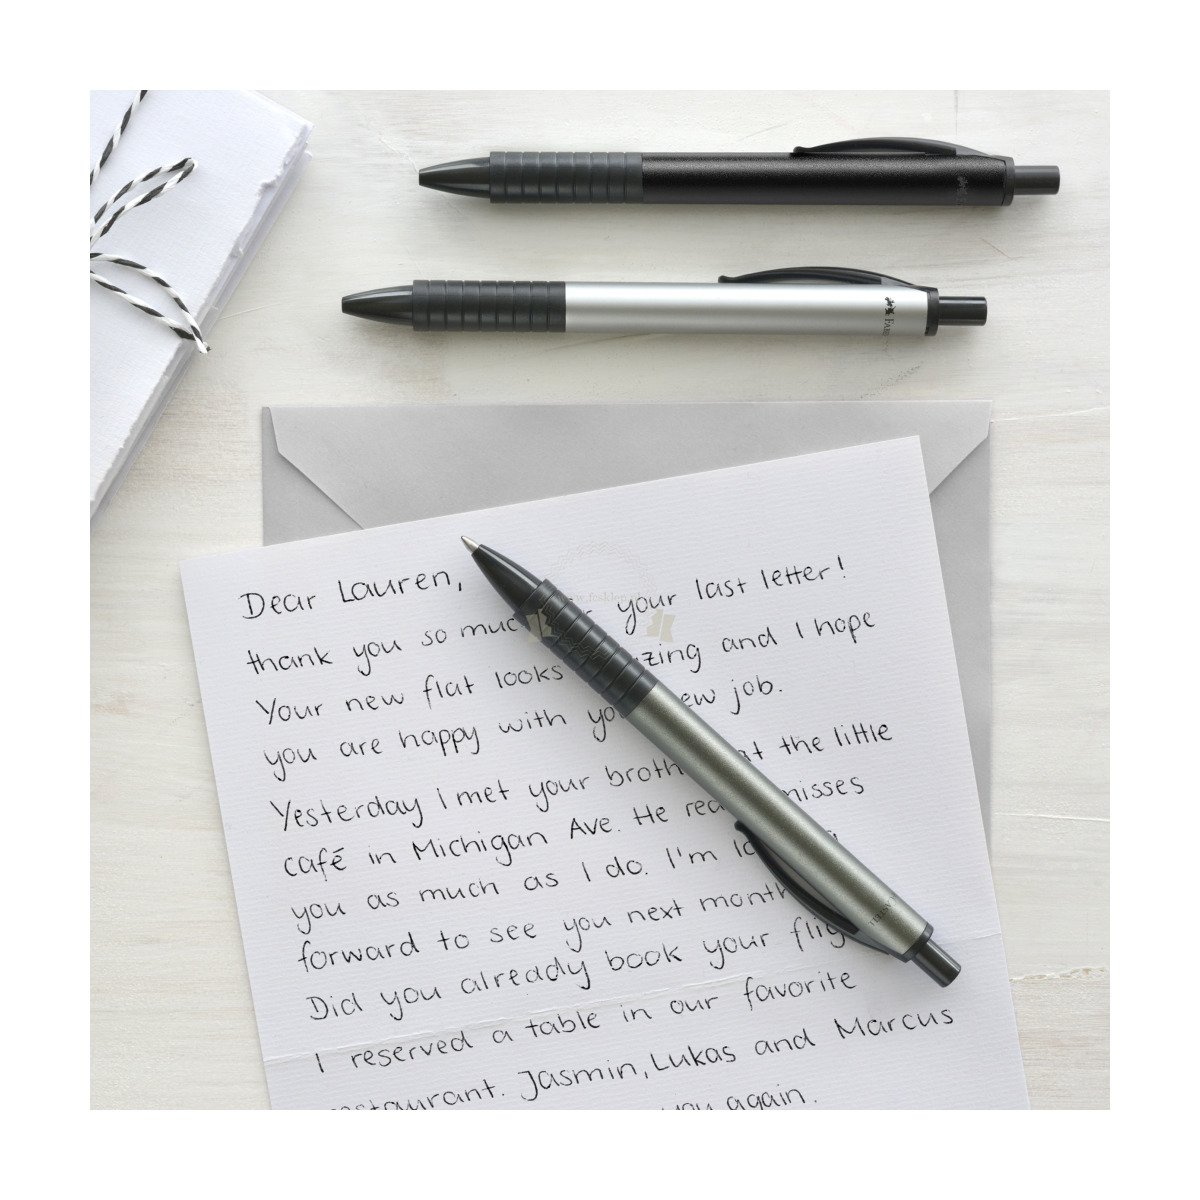 Dear Lauren,
thank you so your last letter!
Your new flat looks and I hope
you are happy with job.
Yesterday I met your at the little
café in Michigan Ave. He misses
you as much as I do. I'm
forward to see you next month
Did you already book your
I reserved a table in our favorite
Jasmin, Lukas and Marcus
you again.